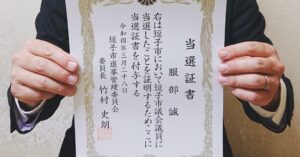 当選証書
服部誠
右は逗子市において逗子市議会議員に
当選したことを証明するためここに
当選証書を付与する
令和四年三月二十八日
逗子市選挙管理委員会
委員長 竹村史朗